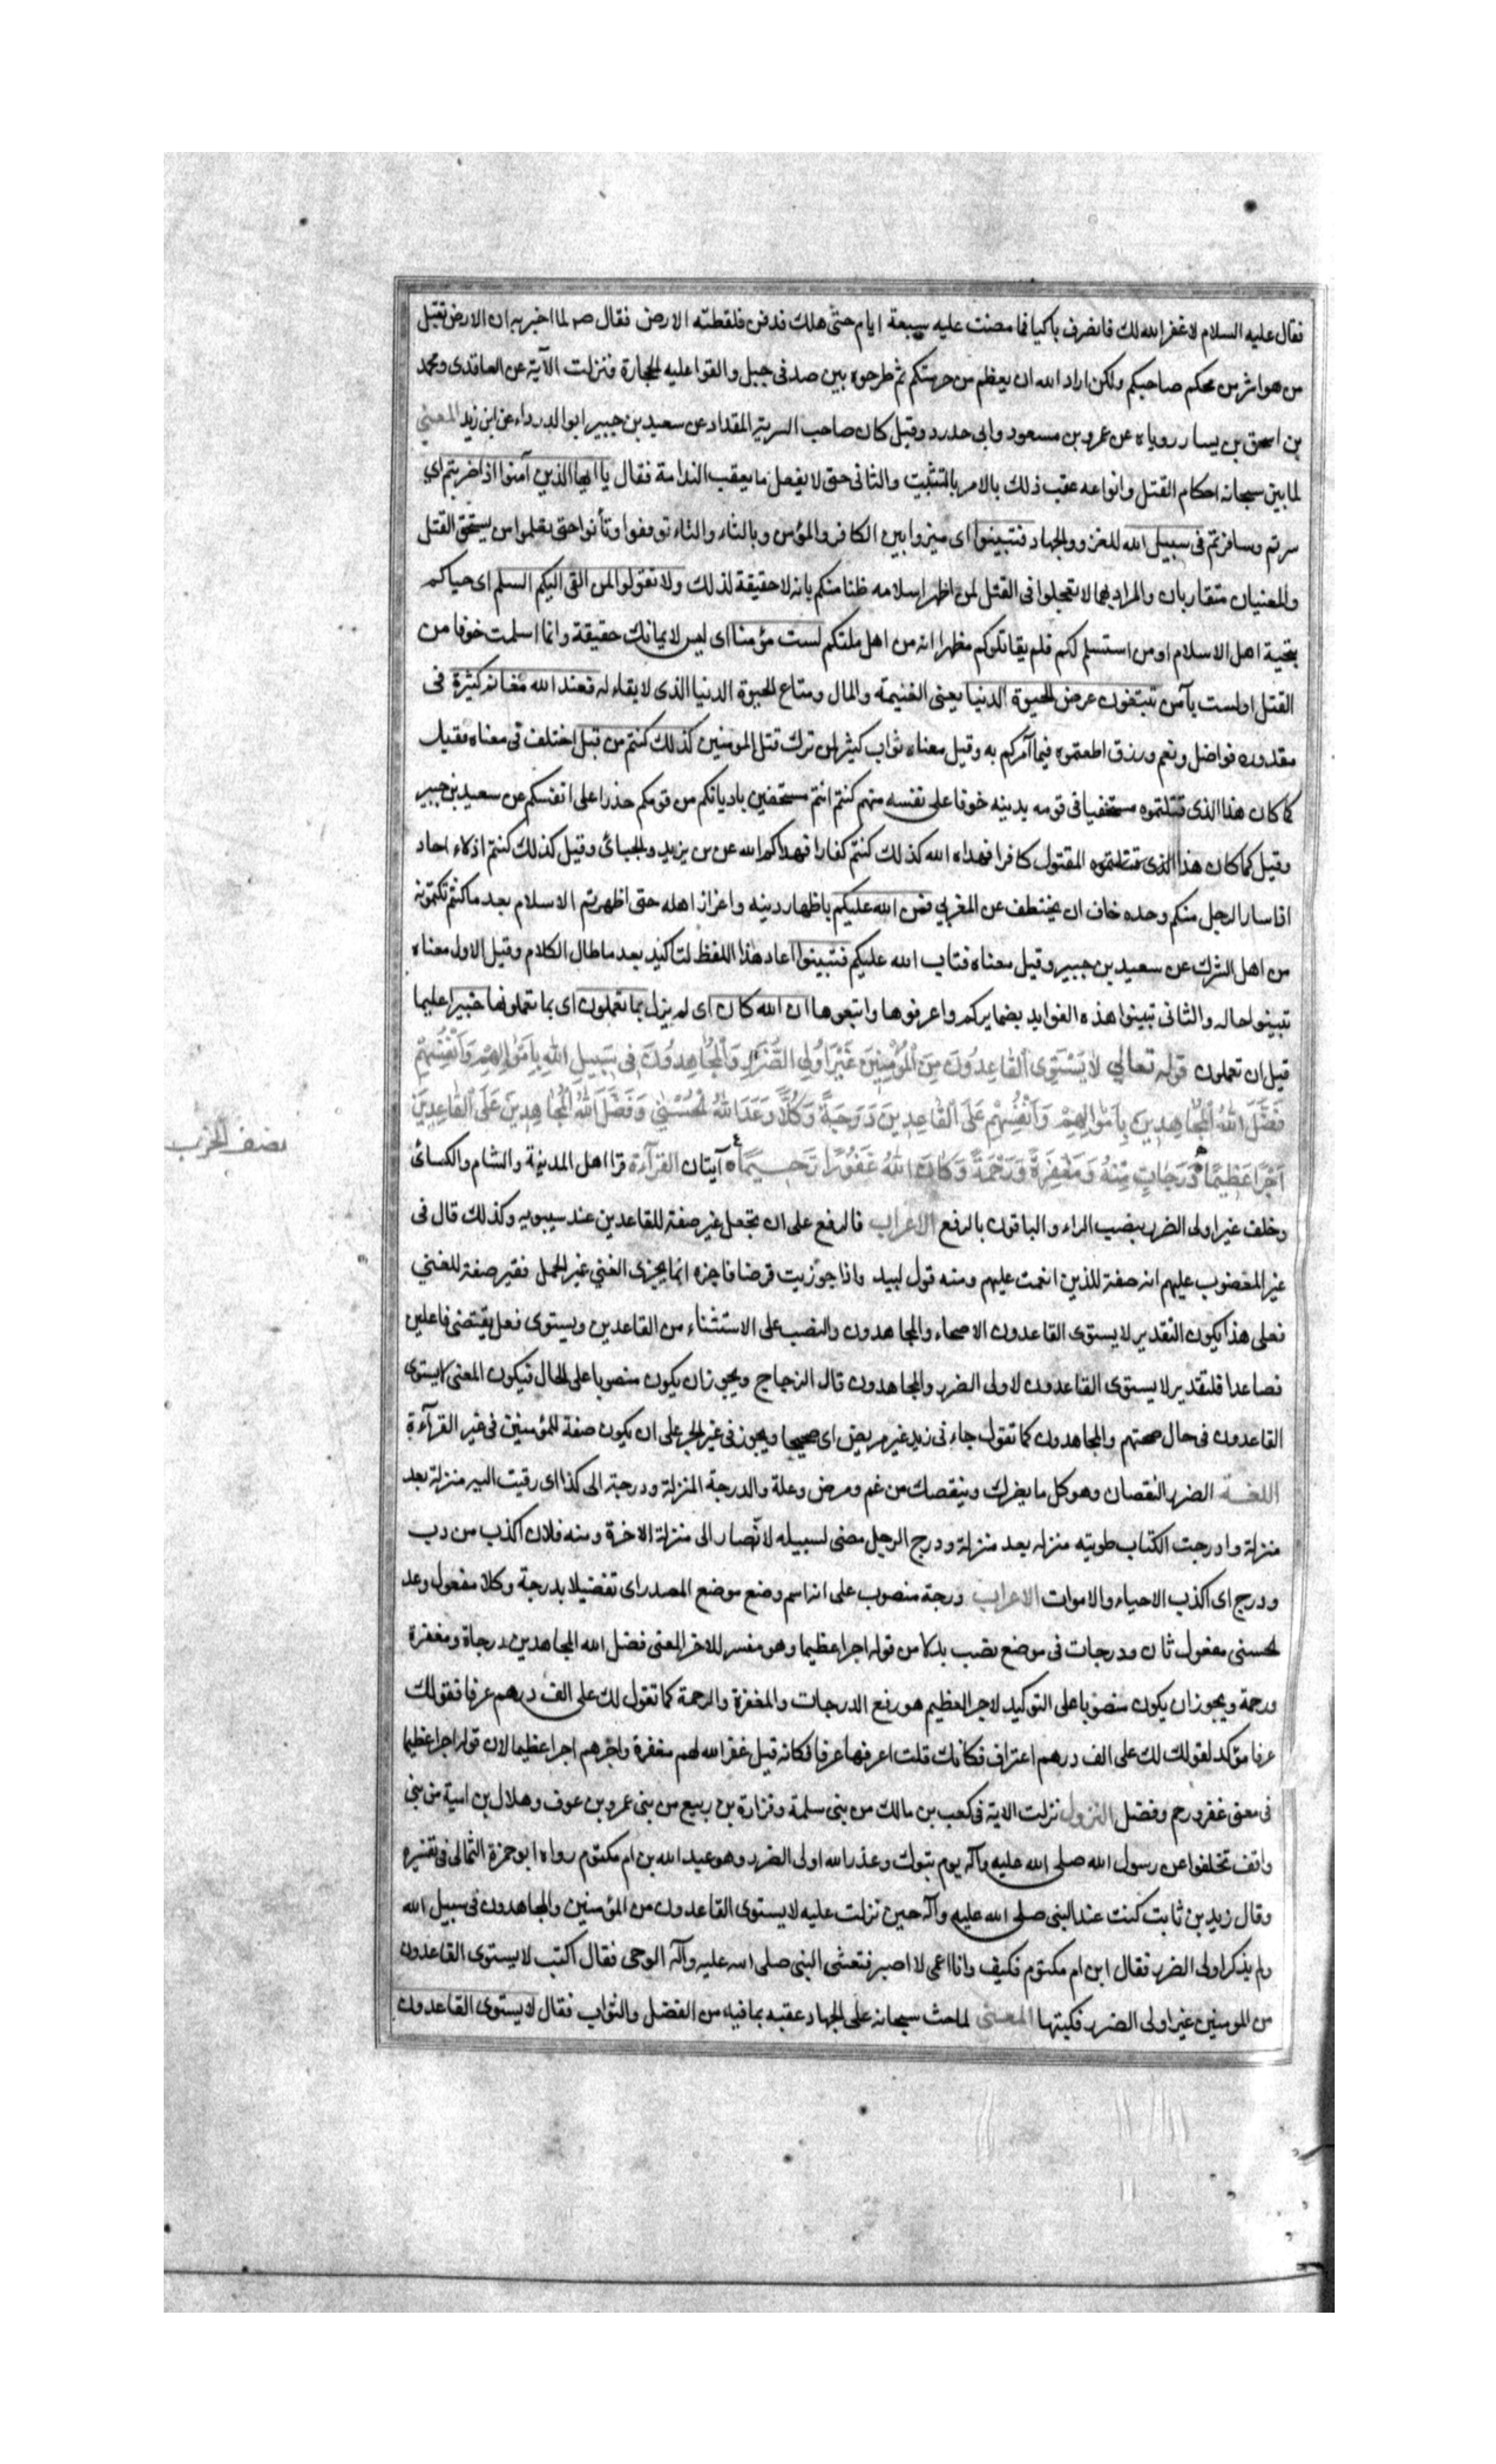 فقال عليه السلام لا غفر الله لك فانصرف باكيا فما مضت عليه سبعة ايام حتى هلك فدفن فلفظته الارض فقال صم لما اخبر به ان الارض تقبل
من هو اشر من محكم صاحبكم ولكن اراد الله ان يعظم من حرمتكم ثم طرحوه بين صدفي جبل والقوا عليه الحجارة فنزلت الآية عن الواقدى ومحمد
بن اسحق بن يسار روياه عن عمرو بن مسعود وابى حدرد وقيل كان صاحب السرية المقداد عن سعيد بن جبير ابو الدرداء عن ابن زيد المعنى
لما بين سبحانه احكام القتل وانواعه عقب ذلك بالامر بالتثبت والثانى حتى لا يفعل ما يعقب الندامة فقال يا ايها الذين آمنوا اذا ضربتم اي
سرتم وسافرتم فى سبيل الله للغزو والجهاد فتبينوا اى ميزوا بين الكافر والمؤمن وبالثاء والتاء توقفوا وتأنوا حتى يعلموا من يستحق القتل
والمعنيان متقاربان والمراد بهما لا تعجلوا فى القتل لمن اظهر اسلامه ظنا منكم بانه لا حقيقة لذلك ولا تقولوا لمن القى اليكم السلم اى حياكم
بتحية اهل الاسلام او من استسلم لكم فلم يقاتلوكم مظهرا انه من اهل ملتكم لست مؤمنا اى ليس لايمانك حقيقة وانما اسلمت خوفا من
القتل او لست بآمن تبتغون عرض الحيوة الدنيا يعنى الغنيمة والمال ومتاع الحيوة الدنيا الذى لا بقاء له فعند الله مغانم كثيرة فى
مقدوره فواضل ونعم ورزق اطعتموه فيما آمركم به وقيل معناه ثواب كثير لمن ترك قتل المومنين كذلك كنتم من قبل اختلف فى معناه فقيل
كما كان هذا الذى قتلتموه مستخفيا فى قومه بدينه خوفا على نفسه منهم كنتم انتم مستخفين باديانكم من قومكم حذرا على انفسكم عن سعيد بن جبير
وقيل كما كان هذا الذى قتلتموه المقتول كافرا فهداه الله كذلك كنتم كفارا فهداكم الله عن بن يزيد والجبائى وقيل كذلك كنتم اذلاء احاد
اذا سار الرجل منكم وحده خاف ان يختطف عن المغربي فمن الله عليكم باظهار دينه واعزاز اهله حتى اظهرتم الاسلام بعد ما كنتم تكتمونه
من اهل الشرك عن سعيد بن جبير وقيل معناه فتاب الله عليكم فتبينوا اعاد هذا اللفظ لتاكيد بعد ما طال الكلام وقيل الاول معناه
تبينوا حاله والثانى تبينوا هذه الفوايد بضمايركم واعرفوها واتبعوها ان الله كان اى لم يزل بما تعملون اى بما تعملونها خبيرا عليما
قبل ان تعملون قوله تعالي لَا يَسْتَوِى القَاعِدُونَ مِنَ المُؤْمِنِينَ غَيْرُ اُولِى الضَّرَرِ وَالمُجَاهِدُونَ فِى سَبِيلِ اللهِ بِاَمْوَالِهِمْ وَاَنْفُسِهِمْ
فَضَّلَ اللهُ المُجَاهِدِينَ بِاَمْوَالِهِمْ وَاَنْفُسِهِمْ عَلَى القَاعِدِينَ دَرَجَةً وَكُلًّا وَعَدَ اللهُ الحُسْنٰى وَفَضَّلَ اللهُ المُجَاهِدِينَ عَلَى القَاعِدِينَ
نصف الحزب
اَجْرًا عَظِيمًا دَرَجَاتٍ مِنْهُ وَمَغْفِرَةً وَرَحْمَةً وَكَانَ اللهُ غَفُورًا رَحِيمًا آيتان القرآءة قرا اهل المدينة والشام والكسائى
وخلف غير اولى الضرر بنصب الراء والباقون بالرفع الاعراب فالرفع على ان تجعل غير صفة للقاعدين عند سيبويه وكذلك قال فى
غير المغضوب عليهم انه صفة للذين انعمت عليهم ومنه قول لبيد واذا جوزيت قرضا فاجزه انما يجزى الفتي غير الجمل فغير صفة للفتي
فعلى هذا يكون التقدير لا يستوى القاعدون الاصحاء والمجاهدون والنصب على الاستثناء من القاعدين ويستوى فعل يقتضى فاعلين
فصاعدا فلتقدير لا يستوى القاعدون لاولى الضرر والمجاهدون قال الزجاج ويجوز ان يكون منصوبا على الحال فيكون المعنى لا يستوى
القاعدون فى حال صحتهم والمجاهدون كما تقول جاءنى زيد غير مريض اى صحيحا ويجوز فى غير الجر على ان يكون صفة للمؤمنين فى غير القرآءة
اللغة الضرر النقصان وهو كل ما يضرك وينقصك من غم ومرض وعلة والدرجة المنزلة ودرجة الى كذا اى رقيت اليه منزلة بعد
منزلة وادرجت الكتاب طويته منزله بعد منزلة ودرج الرجل مضى لسبيله لانه صار الى منزلة الاخرة ومنه فلان اكذب من دب
ودرج اى اكذب الاحياء والاموات الاعراب درجة منصوب على انه اسم وضع موضع المصدر اى تفضيلا بدرجة وكلا مفعول وعد
لحسنى مفعول ثان ودرجات فى موضع نصب بدلا من قوله اجرا عظيما وهو مفسر للاجر المعنى فضل الله المجاهدين درجاة ومغفرة
ورحمة ويجوز ان يكون منصوبا على التوكيد لاجر العظيم هو رفع الدرجات والمغفرة والرحمة كما تقول لك على الف درهم عرفا فقولك
عرفا مؤكد لقولك لك على الف درهم اعتراف فكانك قلت اعرفها عرفا فكانه قيل غفر الله لهم مغفرة واجرهم اجرا عظيما لان قوله اجرا عظيما
فى معنى غفر ورحم وفضل النزول نزلت الاية فى كعب بن مالك من بنى سلمة وفزارة بن ربيع من بنى عمرو بن عوف وهلال بن امية من بنى
واقف تخلفوا عن رسول الله صلى الله عليه وآله يوم تبوك وعذر الله اولى الضرر وهو عبد الله بن ام مكتوم رواه ابو حمزة الثمالى فى تفسيره
وقال زيد بن ثابت كنت عند النبى صلى الله عليه وآله حين نزلت عليه لا يستوى القاعدون من المؤمنين والمجاهدون فى سبيل الله
ولم يذكر اولى الضرر فقال ابن ام مكتوم فكيف وانا اعمى لا ابصر فتغشى النبى صلى الله عليه وآله الوحى فقال اكتب لا يستوى القاعدون
من المومنين غير اولى الضرر فكتبها المعنى لما حث سبحانه على الجهاد عقبه بما فيه من الفضل والثواب فقال لا يستوى القاعدون